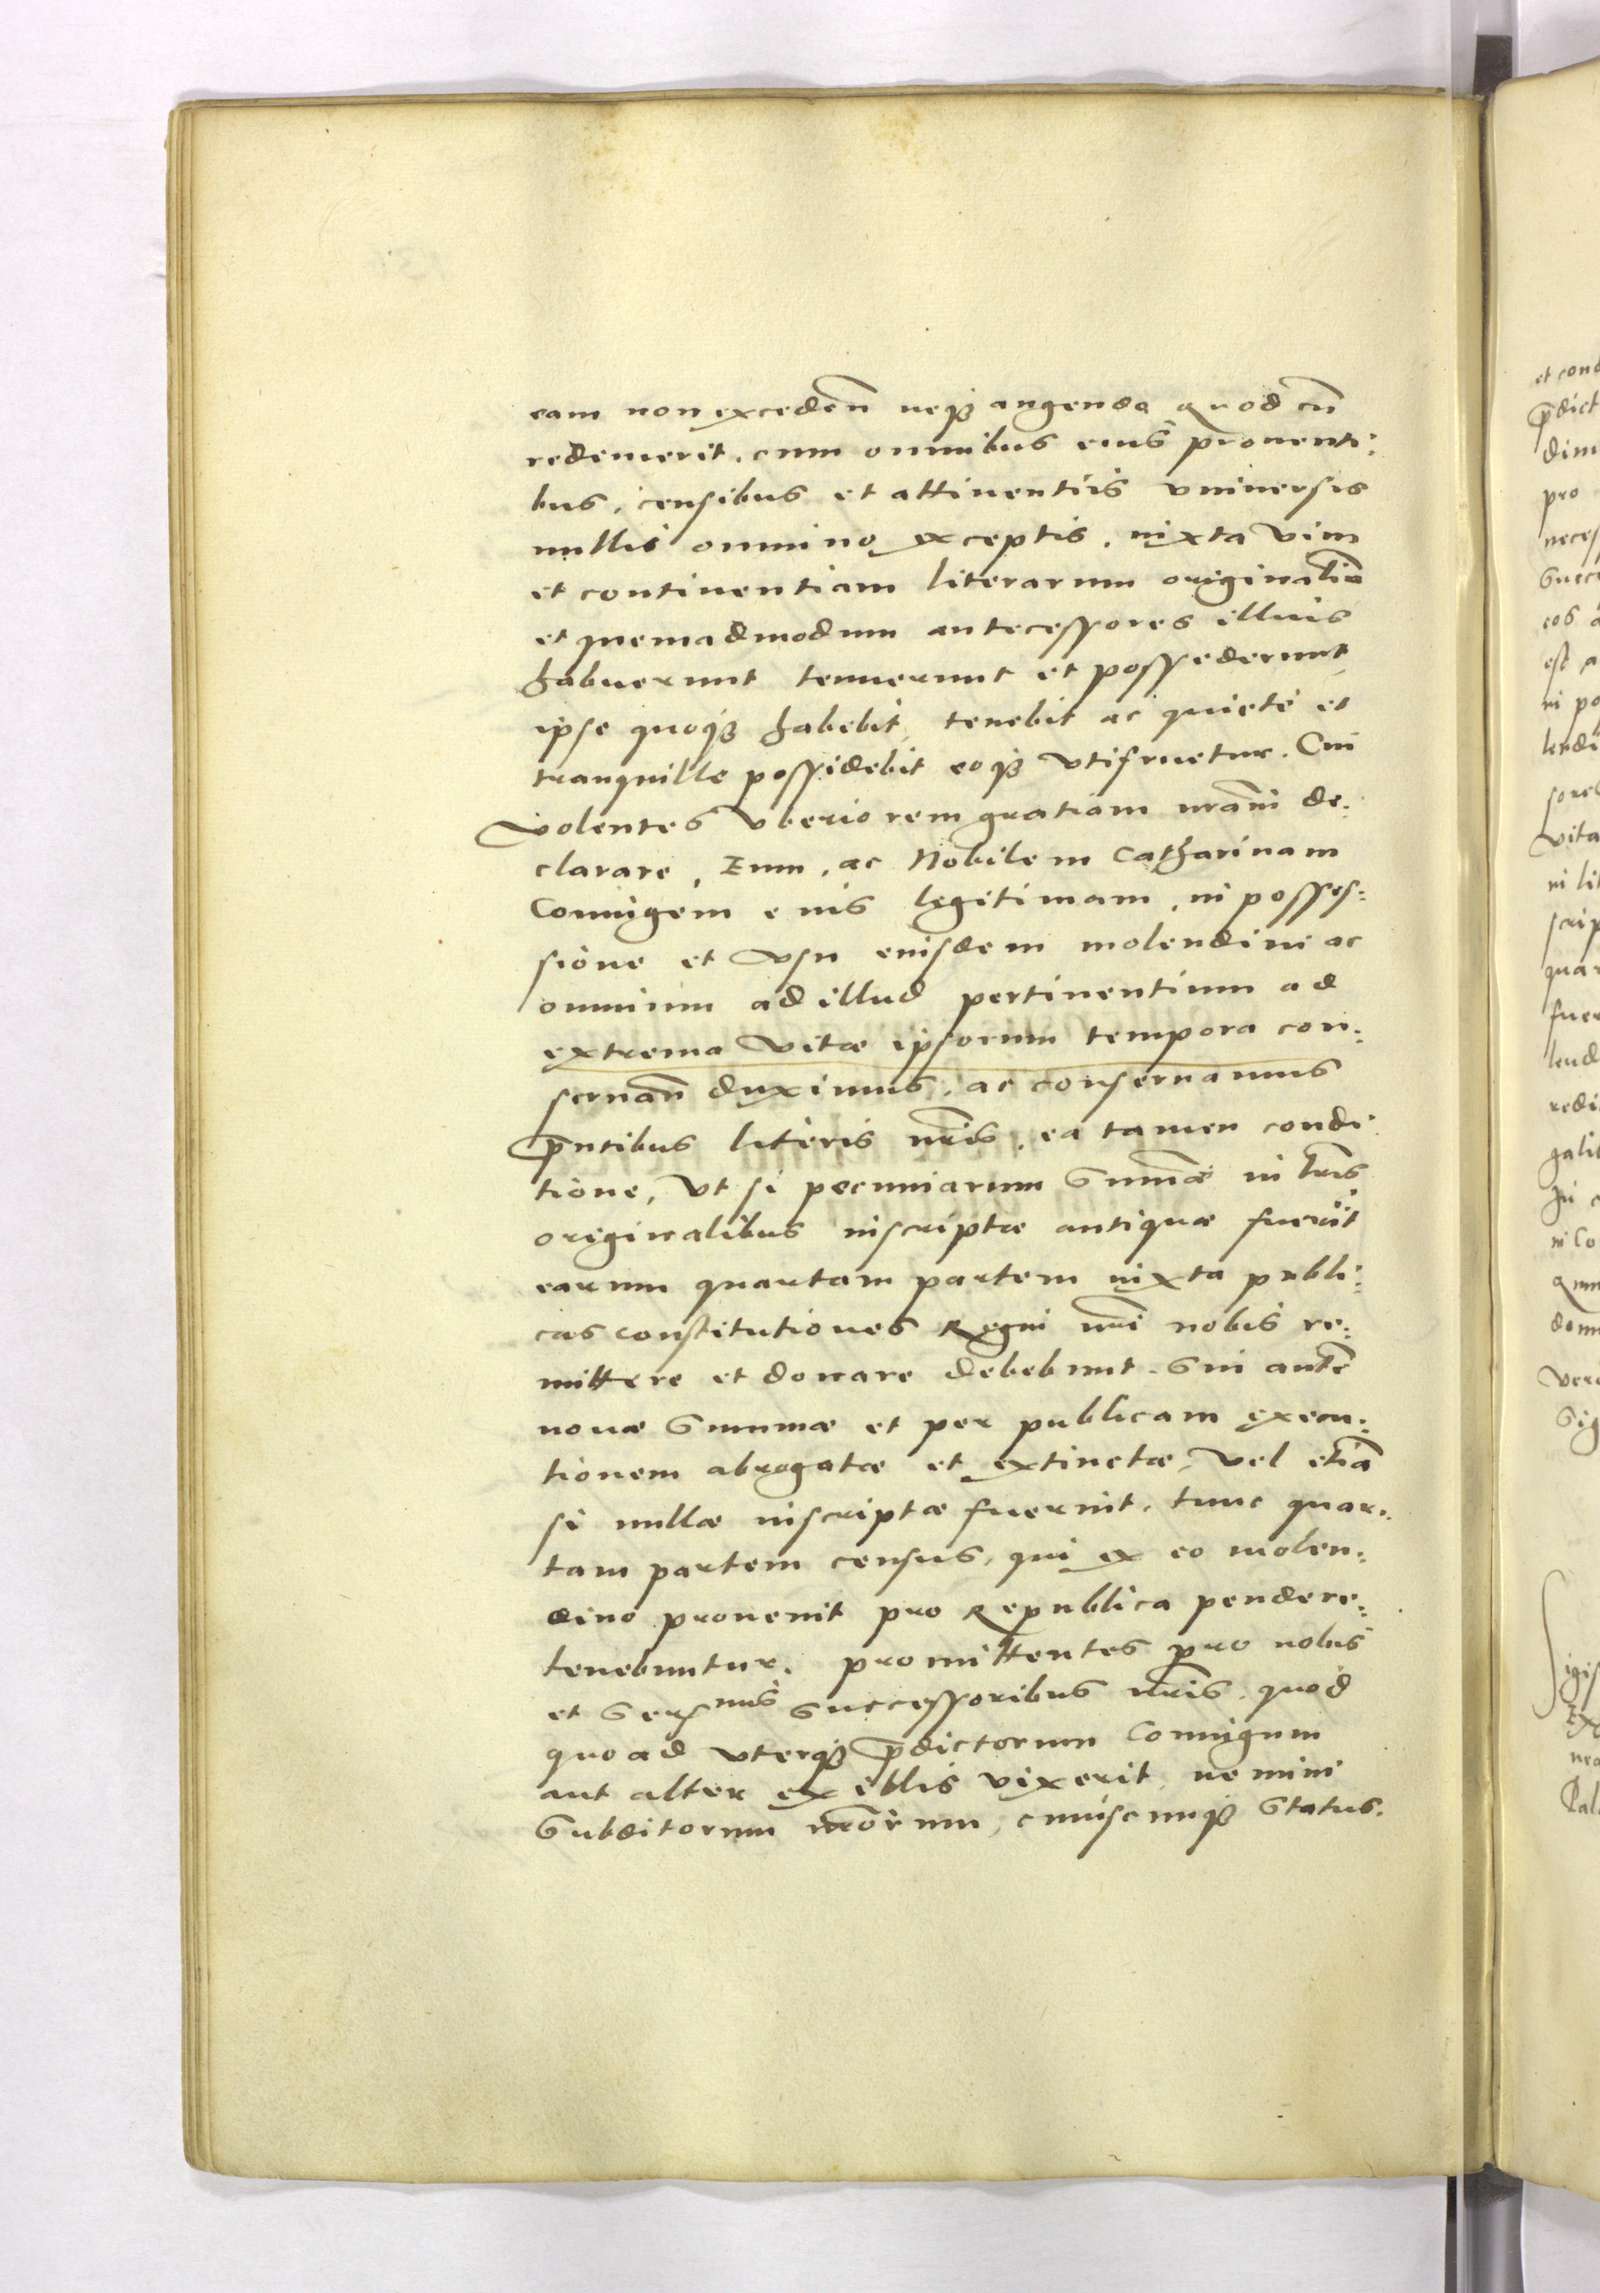 eam non exceden̄ neqꝫ augenda Quod cū
redemerit. cum omnibus eius prouenti:
bus, censibus et attinentiis vniuersis
nullis omnino exceptis, iuxta vim
et continentiam literarum originaliū
et quemadmodum antecessores illius
habuerunt tenuerunt et possederunt,
ipse quoqꝫ habebit, tenebit ac quietè et
tranquille possidebit eoqꝫ vtifruetur. Cui
volentes vberiorem gratiam nr̄am de:
clarare, Eum, ac Nobilem Catharinam
Coniugem eius legitimam, in posses:
sione et vsu eiusdem molendini ac
omnium ad illud pertinentium ad
extrema vitæ ipsorum tempora con:
seruan̄ duximus, ac conseruamus
pn̄tibus literis nr̄is. ea tamen condi
tione, vt si pecuniarum Summæ in lr̄is
originalibus inscriptæ antiquæ fuerūt
earum quartam partem iuxta publi:
cas constitutiones Regni nr̄i nobis re:
mittere et donare debebunt. Sin autē
nouæ Summæ et per publicam execu:
tionem abrogatæ et extinctæ, vel etiā
si nullæ inscriptæ fuerint, tunc quar:
tam partem census, qui ex eo molen:
dino prouenit pro Republica pendere
tenebuntur. promittentes pro nobis
et Sermis Successoribus nr̄is. quod
quoad vterqꝫ p̄dictorum Coniugum
aut alter ex illis vixerit, nemini
Subditorum nr̄orum, cuiuscunqꝫ Status.
et cond
p̄dict
pro
neces
eos a
est a
in po
vita
in lit
scrip
quar
fuer
redi
galit
in co
vero
Sig